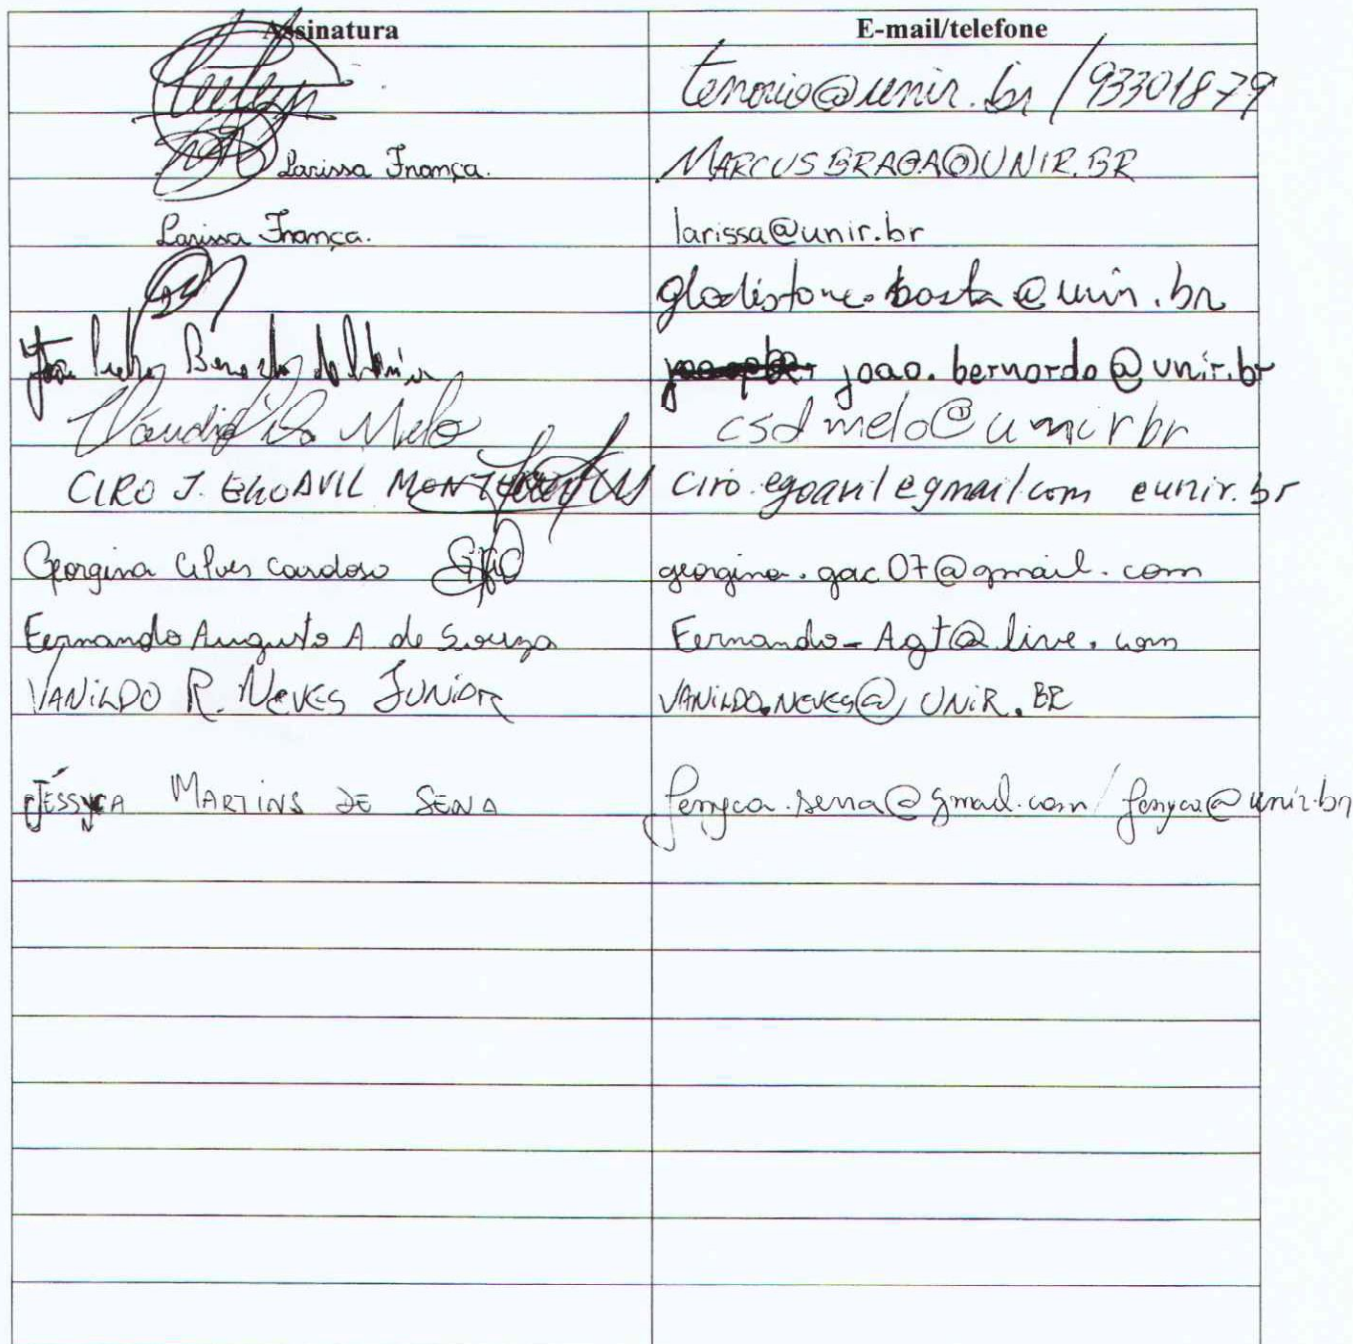 Assinatura E-mail/telefone
tenorio@unir.br / 93301879
Larissa França. MARCUSBRAGA@UNIR.BR
Larissa França. larissa@unir.br
gladistone.costa@unir.br
João Pedro Bernardo joao.bernardo@unir.br
Melo csdmelo@unirbr
CIRO J. EGOAVIL ciro.egoavil@gmail.com eunir.br
Georgina Alves cardoso georgina.gac07@gmail.com
Fernando Augusto A de Souza Fernando-Agt@live.com
VANILDO R. NEVES JUNIOR VANILDO.NEVES@UNIR.BR
JÉSSYCA MARTINS DE SENA jessyca.sena@gmail.com / jessyca@unir.br